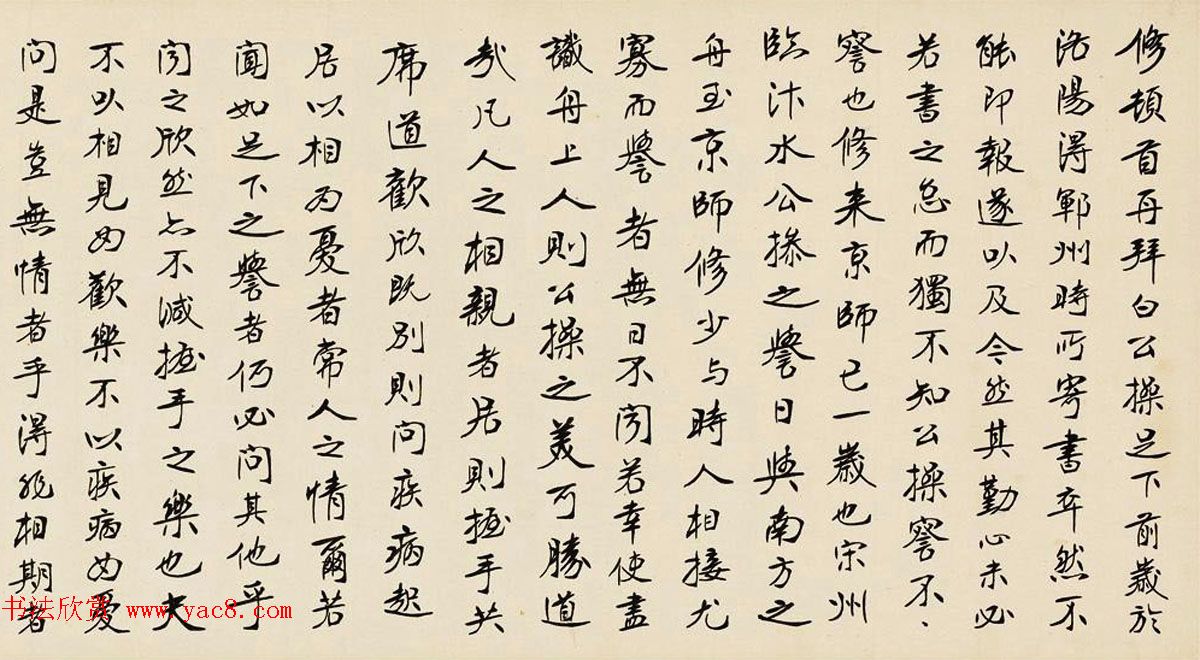 修頓首再拜白公操足下前歲於
洛陽得鄆州時所寄書卒然不
能即報遂以及今然其勤心未必
若書之怠而獨不知公操察不、
察也修来京師已一歲也宋州
臨汴水公操之譽日與南方之
舟至京師修少与時人相接尤
寡而譽者無日不聞若幸使盡
識舟上人則公操之美可勝道
哉凡人之相親者居則握手共
席道歡欣既別則问疾病起
居以相为憂者常人之情爾若
聞如足下之譽者何必问其他乎
聞之欣然亦不减握手之樂也夫
不以相見为歡樂不以疾病为憂
问是豈無情者乎得非相期者
书法欣赏 www.yac8.com